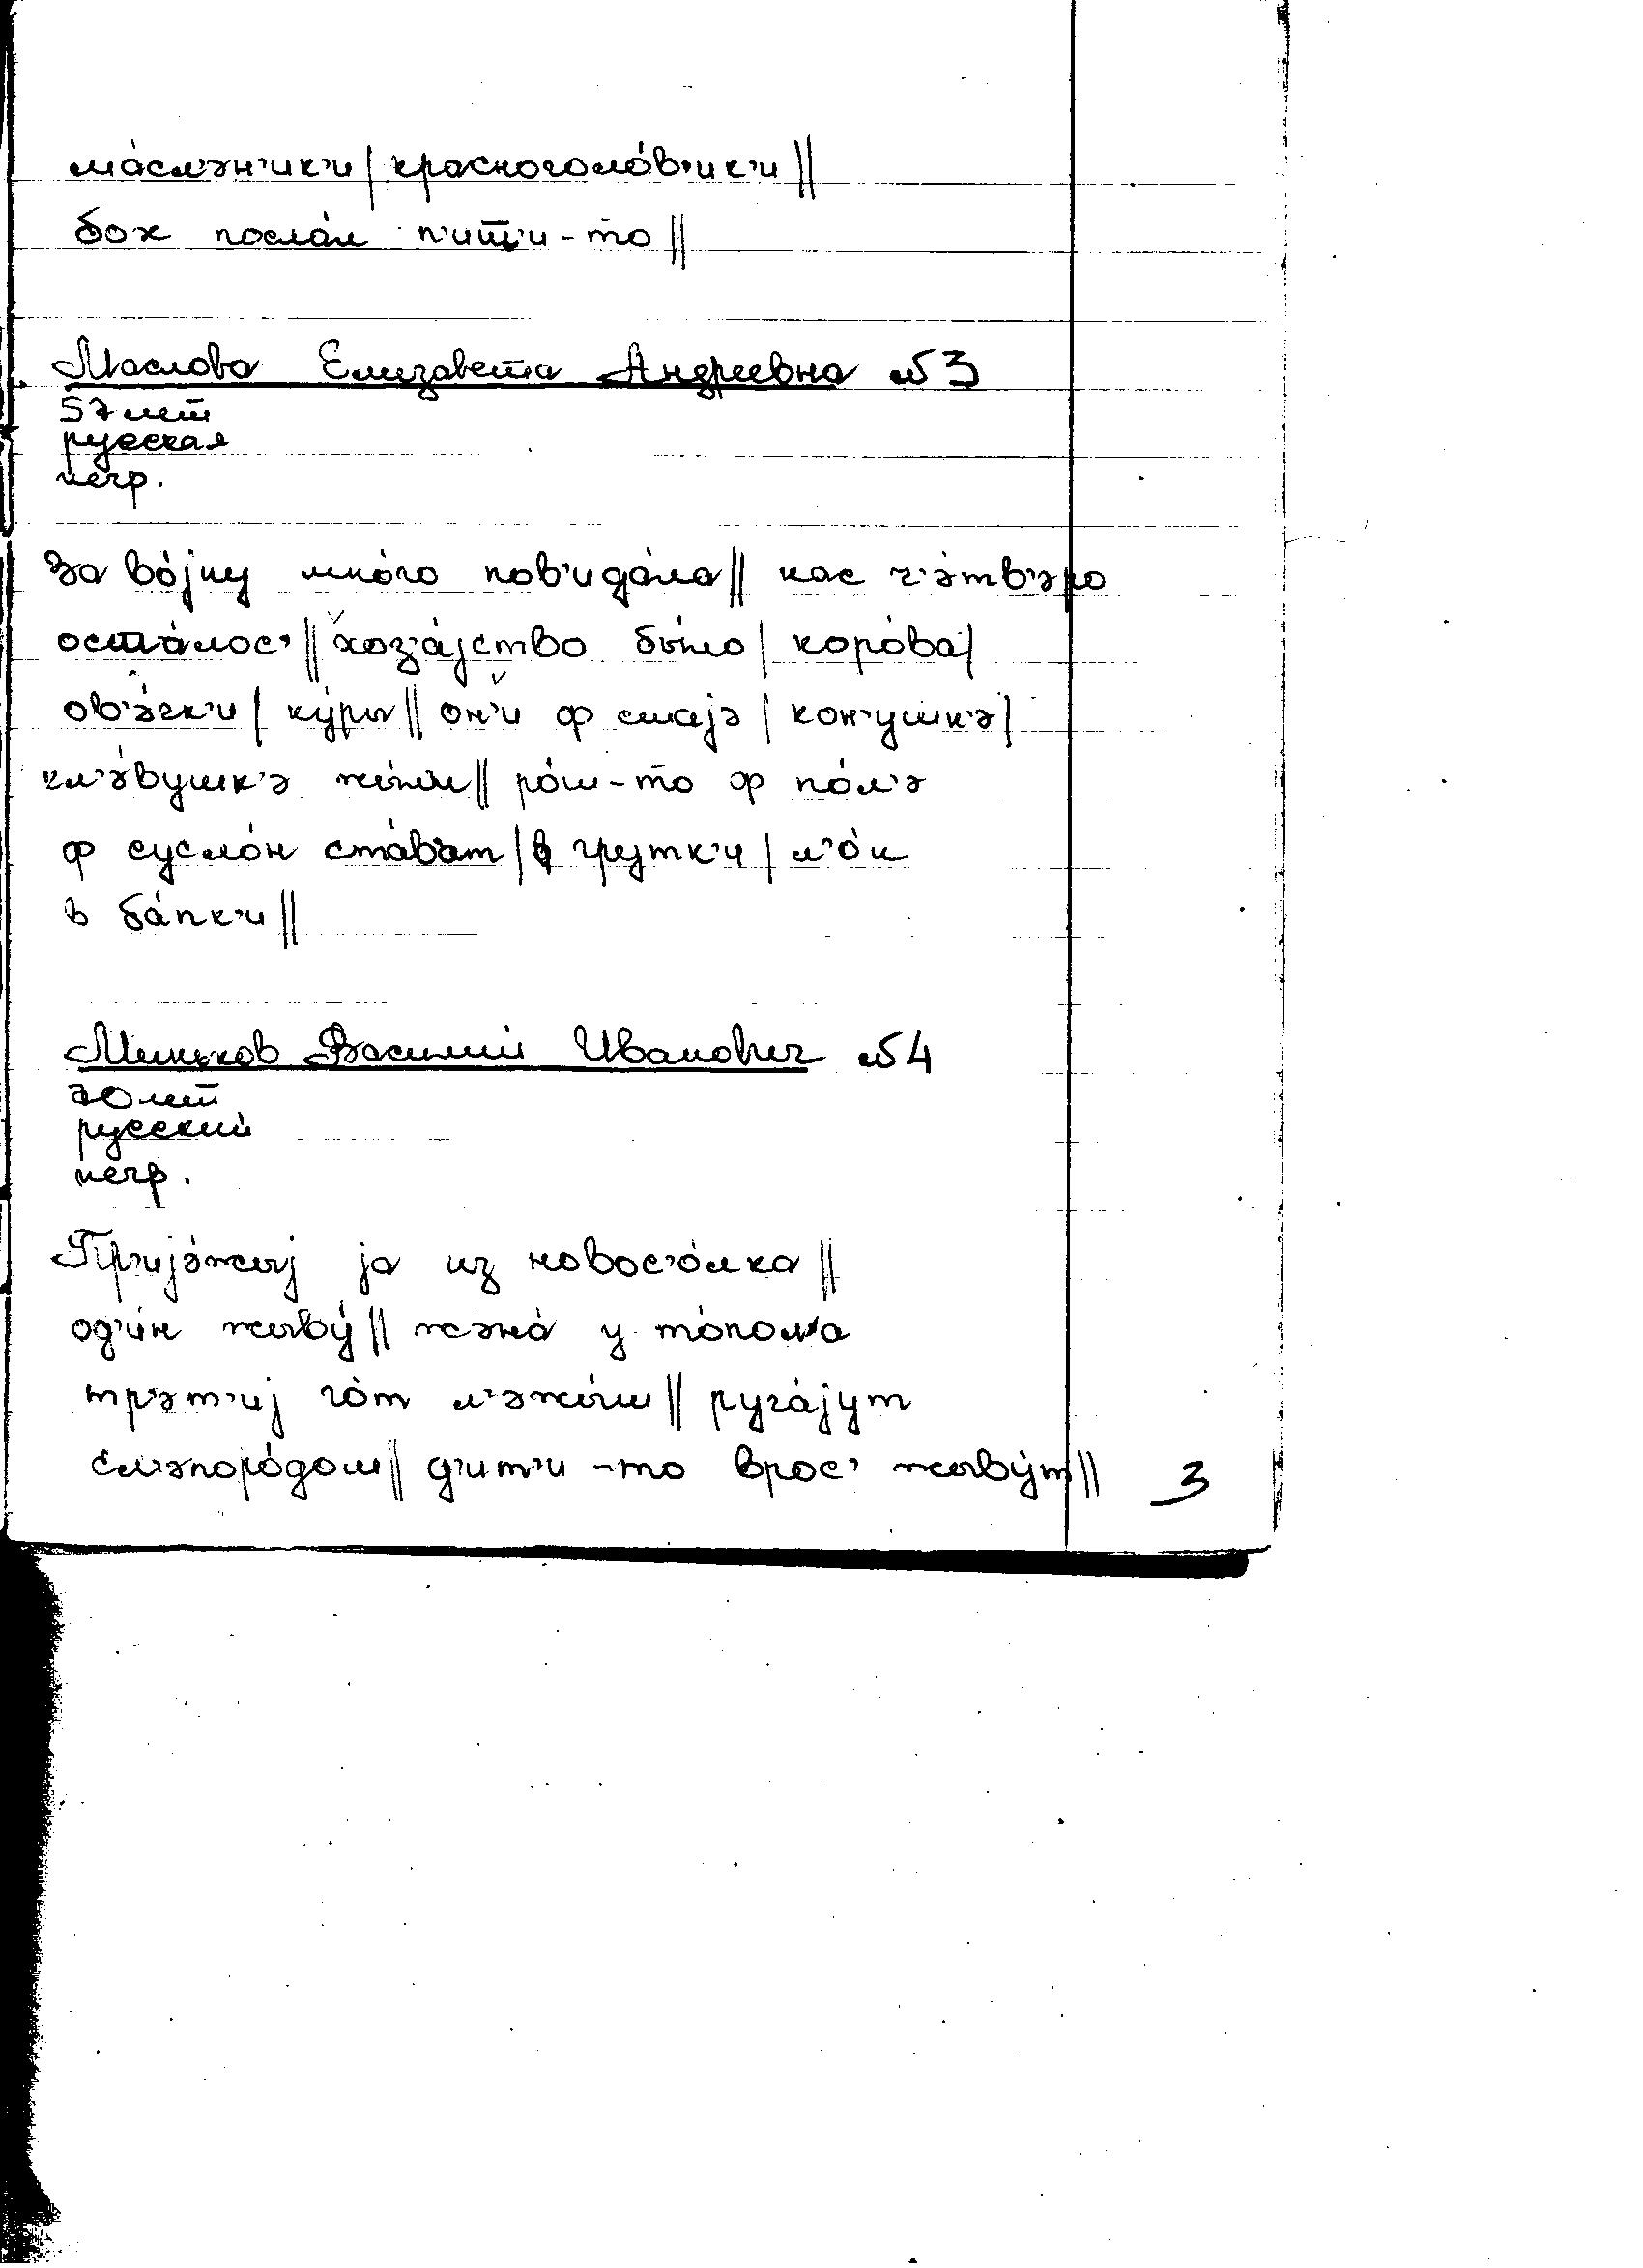 ма́сл'эн'ик'и | красноголо́в'ик'и ||
бох посла́л п'ит'и-то ||
Маслова Елизавета Андреевна №3
57 лет
русская
негр.
За во́јну мно́го пов'ида́ла || нас ч'э́тв'эро
оста́лос' || хоз'а́јство бы́ло | коро́ва |
ов'э́чк'и | ку́ры || он'и ф стајэ | кон'ушн'э |
хл'э́вушк'э жы́л'и || ро́ш-то ф по́л'э
ф сусло́н ста́в'ат | в грутк'и | л'о́н
в ба́пк'и ||
Миньков Василий Иванович №4
70 лет
русский
негр.
Пр'ијэ́жыј ја из новос'о́лка ||
од'и́н жыву́ || жэна́ у то́пол'а
тр'эт'иј го́т л'эжы́т || руга́јут
сл'эпоро́дом || д'ит'и-то врос' жыву́т || 3